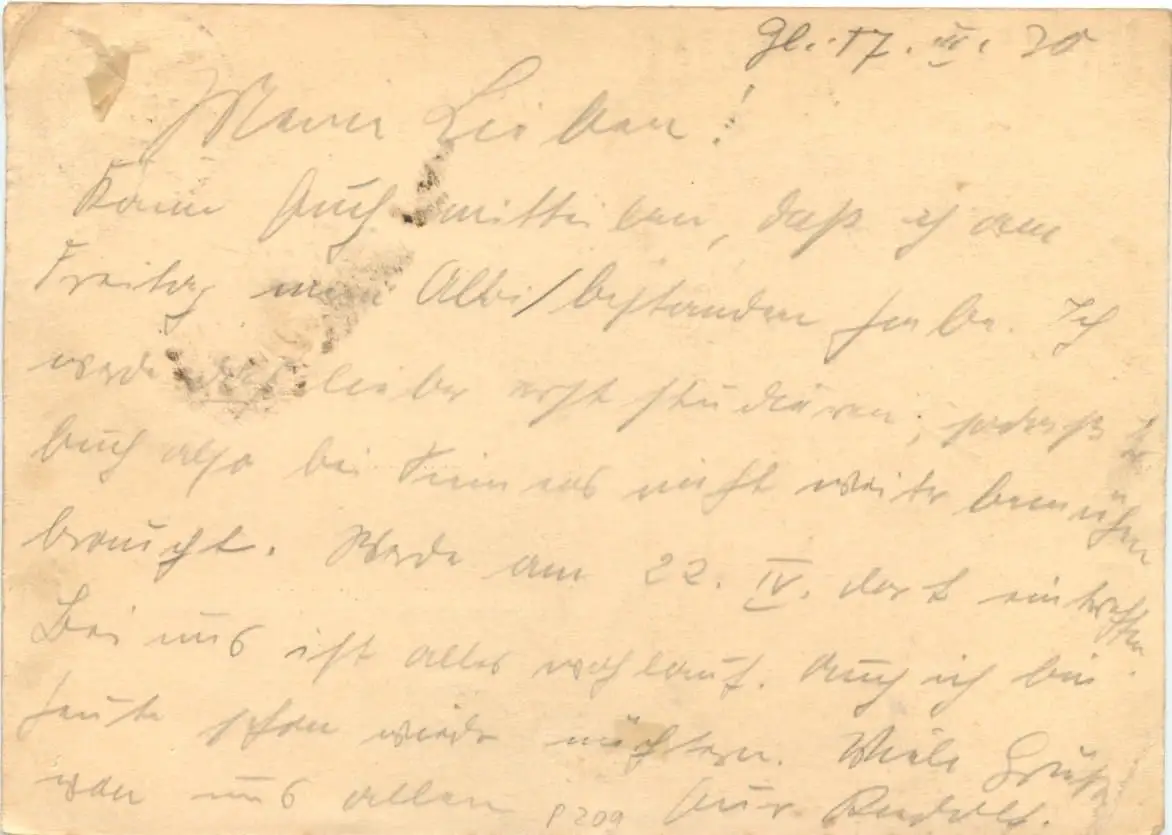 Gl. 17. III. 30
Meine Lieben!
Kann Euch mitteilen, daß ich am
Freitag mein Abi bestanden habe. Ich
werde lieber erst studieren, sodaß Ihr
Euch also bei nicht weiter bemühen
braucht. Werde am 22. IV. dort eintreffen.
Bei uns ist alles wohlauf. Auch ich bin
heute schon wieder nüchtern. Viele Grüße
von uns allen Euer Rudolf.
P209